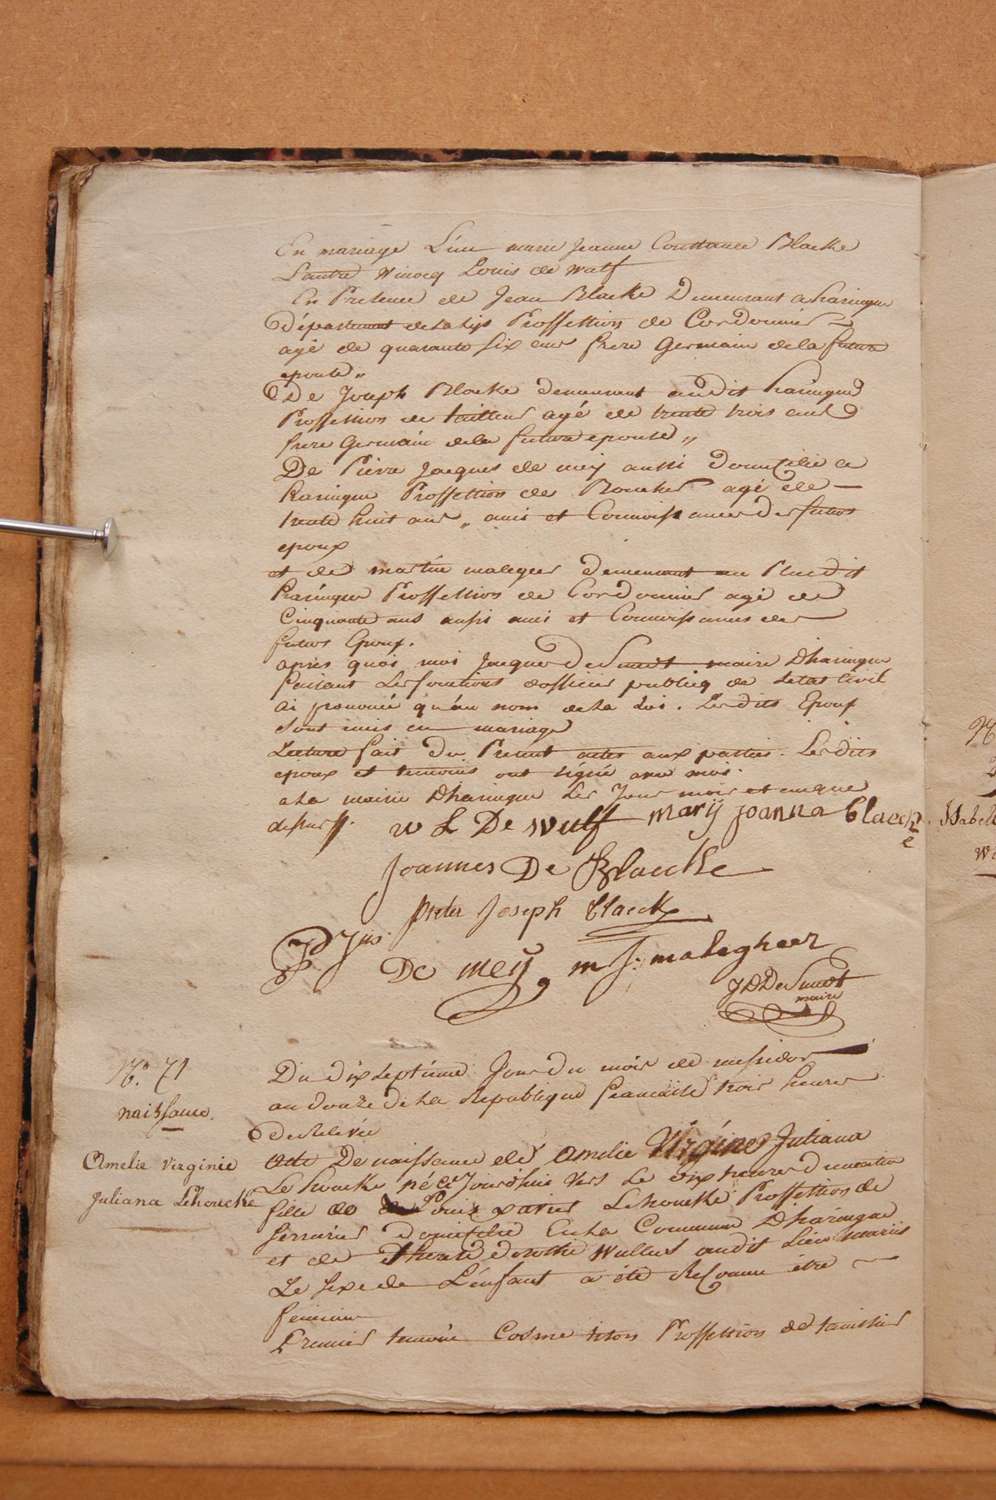 En mariage L'une marie Jeanne Constance Blacke
L'autre Winocq Louis de wulf
En Presence de Jean Blacke Demeurant a haringue
département de la lijs Proffession de Cordonnier
agé de quarante six ans frere Germain de la future
epouse „
De Joseph Blacke demeurant audit haringue
Proffession de tailleur agé de trente trois ans
frere Germain de la futura epouse „
De Pierre Jacques de meij aussi Domicilié a
haringue Proffession de agé de
trente huit ans „ amis et Connoissances des futurs
epoux
et de martin malegeer demeurant au Plusdit
haringue Proffession de Cordonnier agé de
Cinquante ans aussi ami et Connoissances des
futurs Epoux.
après quoi moi Jacques DeSmidt maire Dharingue
faisant les fonctions d'officier publicq de letat Civil
ai prononcé qu'au nom de la Loi. Les dits Epoux
sont unis en mariage
Lecture fait du Present actes aux parties. Les dits
epoux et temoins ont signé avec moi.
a la mairie Dharingue Les Jour mois et an que
dessus
w L De wulf marij joanna Claeck
e
Joannes De Blaecke
Pieter Joseph Claeck
P Jjus De meij m J: malegheer
J D DeSmidt
maire
N°. 71
naissance.
Amelie Virginie
Juliana Lehoucke
Du dix septieme Jour du mois de messidor
an douze de la Republique francaise trois heures
de Relevée
Acte De naissance de Amelie Virginie Juliana
Lehoucke née Jourdhui vers Le dix heures du matin
fille de Louis xavier Lehoucke Proffession de
serrurier domicilié En la Commune Dharingue
et de dorothé wullus audit Lieu mariés
Le sexe de L'enfant a été Reconnu être
feminin
Premier temoin Cosme titon Proffession de